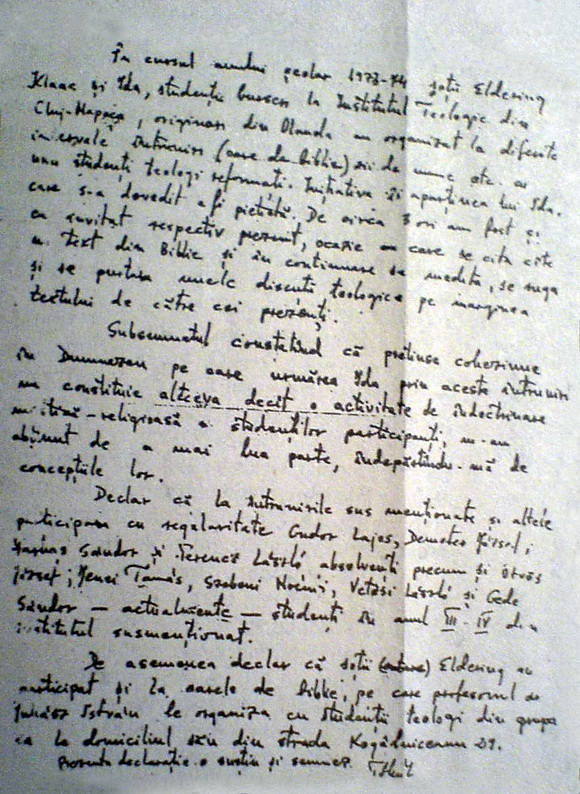 În cursul anului școlar 1973-74 soții Eldering
Klaas și Ida, studenți bursieri la Institutul Teologic din
Cluj-Napoca, originari din Olanda au organizat la diferite
intervale întruniri (oare de biblie) zii de nume etc. cu
unii studenți teologi reformați. Inițiativa îi aparținea lui Ida.
care s-a dovedit a fi pietistă. De circa 3 ori am fost și
eu invitat respectiv prezent, ocazie cu care se cita cîte
un text din Biblie și în continuare se medita, se ruga
și se purtau unele discuții teologice pe marginea
textului de către cei prezenți.
Subsemnatul constatînd că pretinse coheziune
în Dumnezeu pe care urmărea Ida prin aceste întruniri
nu constituie altceva decît o activitate de îndoctrinare
mistică-religioasă a studenților participanți, m-am
abținut de a mai lua parte, îndepărtîndu-mă de
concepțiile lor.
Declar că la întrunirile sus menționate și altele
participau cu regularitate Gudor Lajos, Demeter József,
Sándor și Ferencz László absolvenți precum și
József, Jenei Tamás, Szaboni Noémi, Vetési László și Gede
Sándor — actualmente — studenți în anul III-IV din
institutul susmenționat.
De asemenea declar că soții Eldering au
participat și la oarele de Biblie, pe care profesorul
Juhász István le organiza cu studenții teologi din grupa
sa la domiciliul său din strada Kogălniceanu 27.
Prezenta declarație o susțin și semnez.